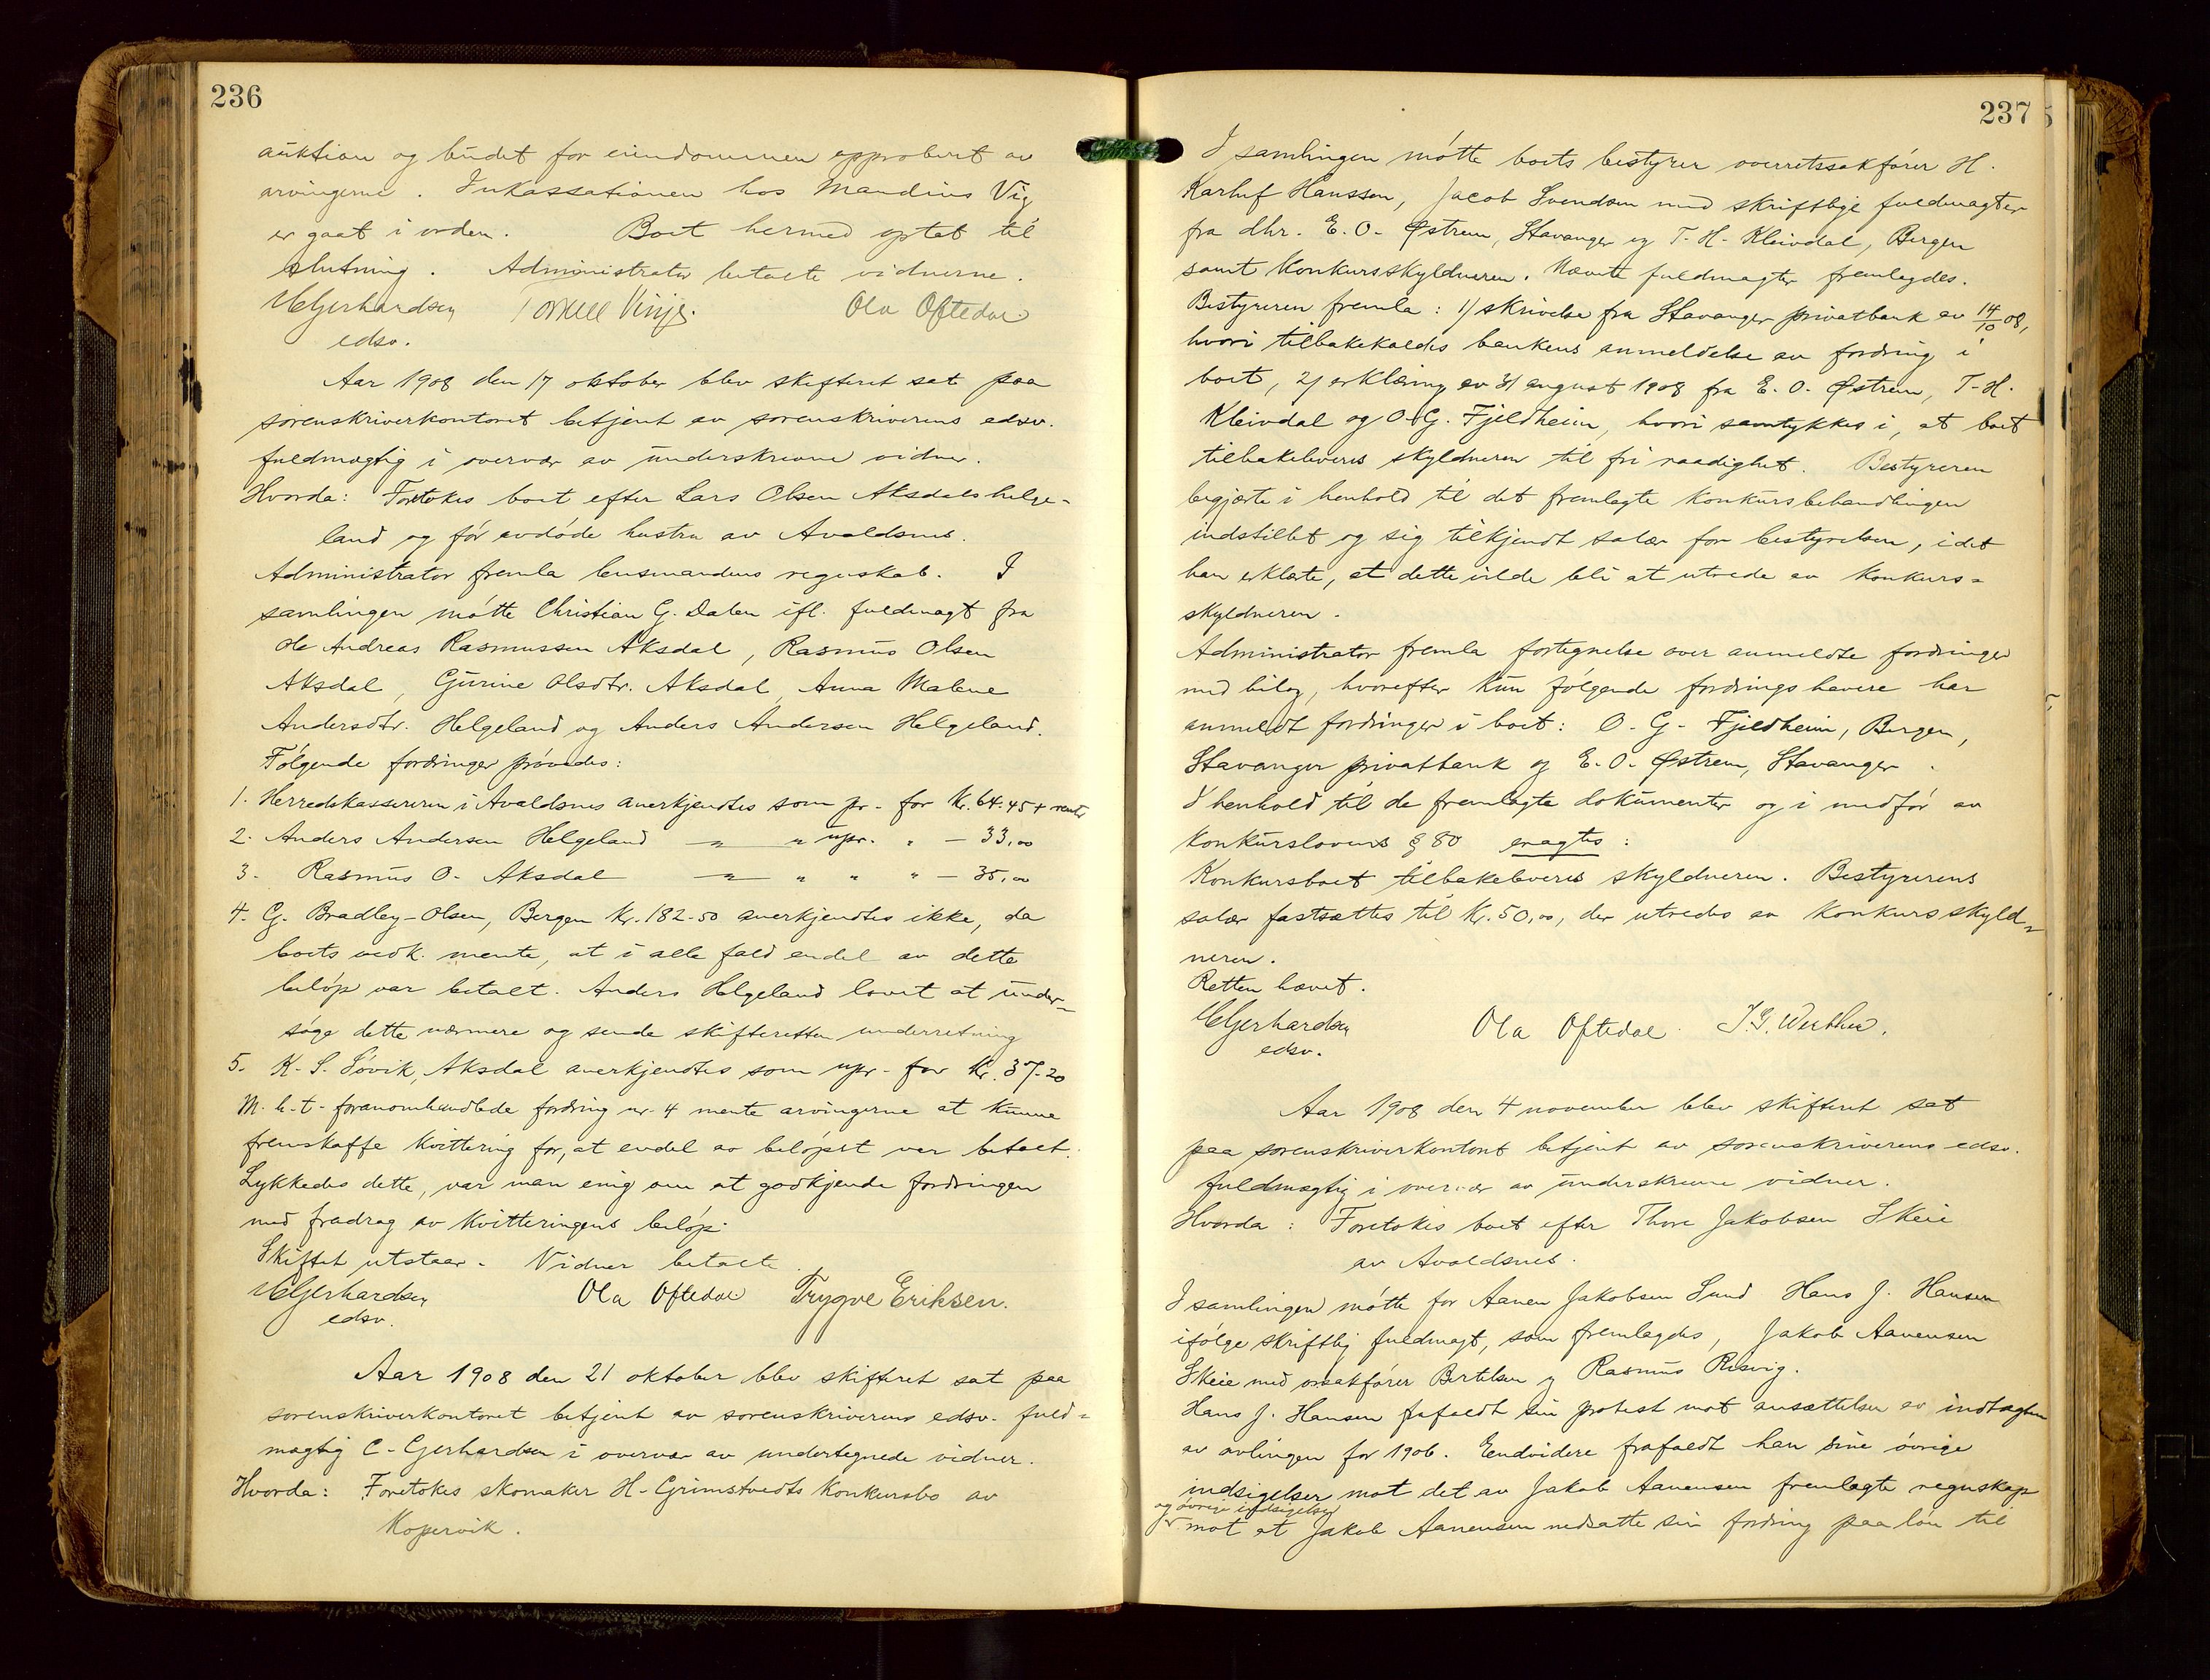 236
auktion og budet for eiendommen approbert av
arvingerne. Inkassationen hos Mandius Vig
er gaat i orden. Boet hermed optat til
slutning. Administrator betalte vidnerne.
CGerhardsen Torkell Vinje. Ola Oftedal
edsv.
Aar 1908 den 17 oktober blev skifteret sat paa
sorenskriverkontoret betjent av sorenskriverens edsv.
fuldmægtig i overvær av underskrevne vidner.
Hvorda: Foretokes boet efter Lars Olsen Aksdalshelge-
land og før avdøde hustru av Avaldsnes.
Administrator fremla lensmandens regnskab. I
samlingen møtte Christian G. Dalen ifl. fuldmagt fra
Ole Andreas Rasmussen Aksdal, Rasmus Olsen
Aksdal, Gurine Olsdtr. Aksdal, Anna Malene
Andersdtr. Helgeland og Anders Andersen Helgeland.
Følgende fordringer prøvedes:
1. Herredskassereren i Avaldsnes anerkjendtes som pr. for Kr. 64.45 + renter
2. Anders Andersen Helgeland — " — " upr. " — 33,00
3. Rasmus O. Aksdal — " — " " " — 35,00
4. G. Bradley-Olsen, Bergen Kr. 182.50 anerkjendtes ikke, da
boets vedk. mente, at i alle fald endel av dette
beløp var betalt. Anders Helgeland lovet at under-
søge dette nærmere og sende skifteretten underretning
5. K. S. Søvik, Aksdal anerkjendtes som upr. for Kr. 37.20
M. h. t. foranomhandlede fordring nr. 4 mente arvingerne at kunne
fremskaffe kvittering for, at endel av beløpet var betalt.
Lykkedes dette, var man enig om at godkjende fordringen
med fradrag av kvitteringens beløp.
Skiftet utstaar. Vidner betalte.
CGerhardsen Ola Oftedal Trygve Eriksen.
edsv.
Aar 1908 den 21 oktober blev skifteret sat paa
sorenskriverkontoret betjent av sorenskriverens edsv. fuld-
mægtig C. Gerhardsen i overvær av undertegnede vidner.
Hvorda: Foretokes skomaker H. Grimstvedts konkursbo av
Kopervik.
237
I samlingen møtte boets bestyrer overretssakfører H.
Karluf Hanssen, Jacob Svendsen med skriftlige fuldmagter
fra dhr. E. O. Østrem, Stavanger og T. H. Kleivdal, Bergen
samt konkursskyldneren. Nævnte fuldmagter fremlagdes.
Bestyreren fremla: 1/ skrivelse fra Stavanger privatbank av 14/10 08,
hvori tilbakekaldes bankens anmeldelse av fordring i
boet, 2/ erklæring av 31 august 1908 fra E. O. Østrem, T. H.
Kleivdal og O. G. Fjeldheim, hvori samtykkes i, at boet
tilbakeleveres skyldneren til fri raadighet. Bestyreren
begjærte i henhold til det fremlagte konkursbehandlingen
indstillet og sig tilkjendt salær for bestyrelsen, idet
han erklærte, at dette vilde bli at utrede av konkurs-
skyldneren.
Administrator fremla fortegnelse over anmeldte fordringer
med bilag, hvorefter kun følgende fordringshavere har
anmeldt fordringer i boet: O. G. Fjeldheim, Bergen,
Stavanger privatbank og E. O. Østrem, Stavanger.
I henhold til de fremlagte dokumenter og i medfør av
konkurslovens § 80 eragtes:
Konkursboet tilbakeleveres skyldneren. Bestyrerens
salær fastsættes til Kr. 50,00, der utredes av konkursskyld-
neren.
Retten hævet.
CGerhardsen Ola Oftedal.
edsv.
Aar 1908 den 4 november blev skifteret sat
paa sorenskriverkontoret betjent av sorenskriverens edsv.
fuldmægtig i overvær av underskrevne vidner.
Hvorda: Foretokes boet efter Thore Jakobsen Skeie
av Avaldsnes.
I samlingen møtte for Aanen Jakobsen Sund Hans J. Hansen
ifølge skriftlig fuldmagt, som fremlagdes, Jakob Aanensen
Skeie med o.sakfører Bertelsen og Rasmus Risvig.
Hans J. Hansen frafaldt sin protest mot ansættelsen av indtægten
av avlingen for 1906. Eendvidere frafaldt han sine øvrige
indsigelser mot det av Jakob Aanensen fremlagte regnskap
og øvrige indsigelser
mot at Jakob Aanensen nedsatte sin fordring paa løn til